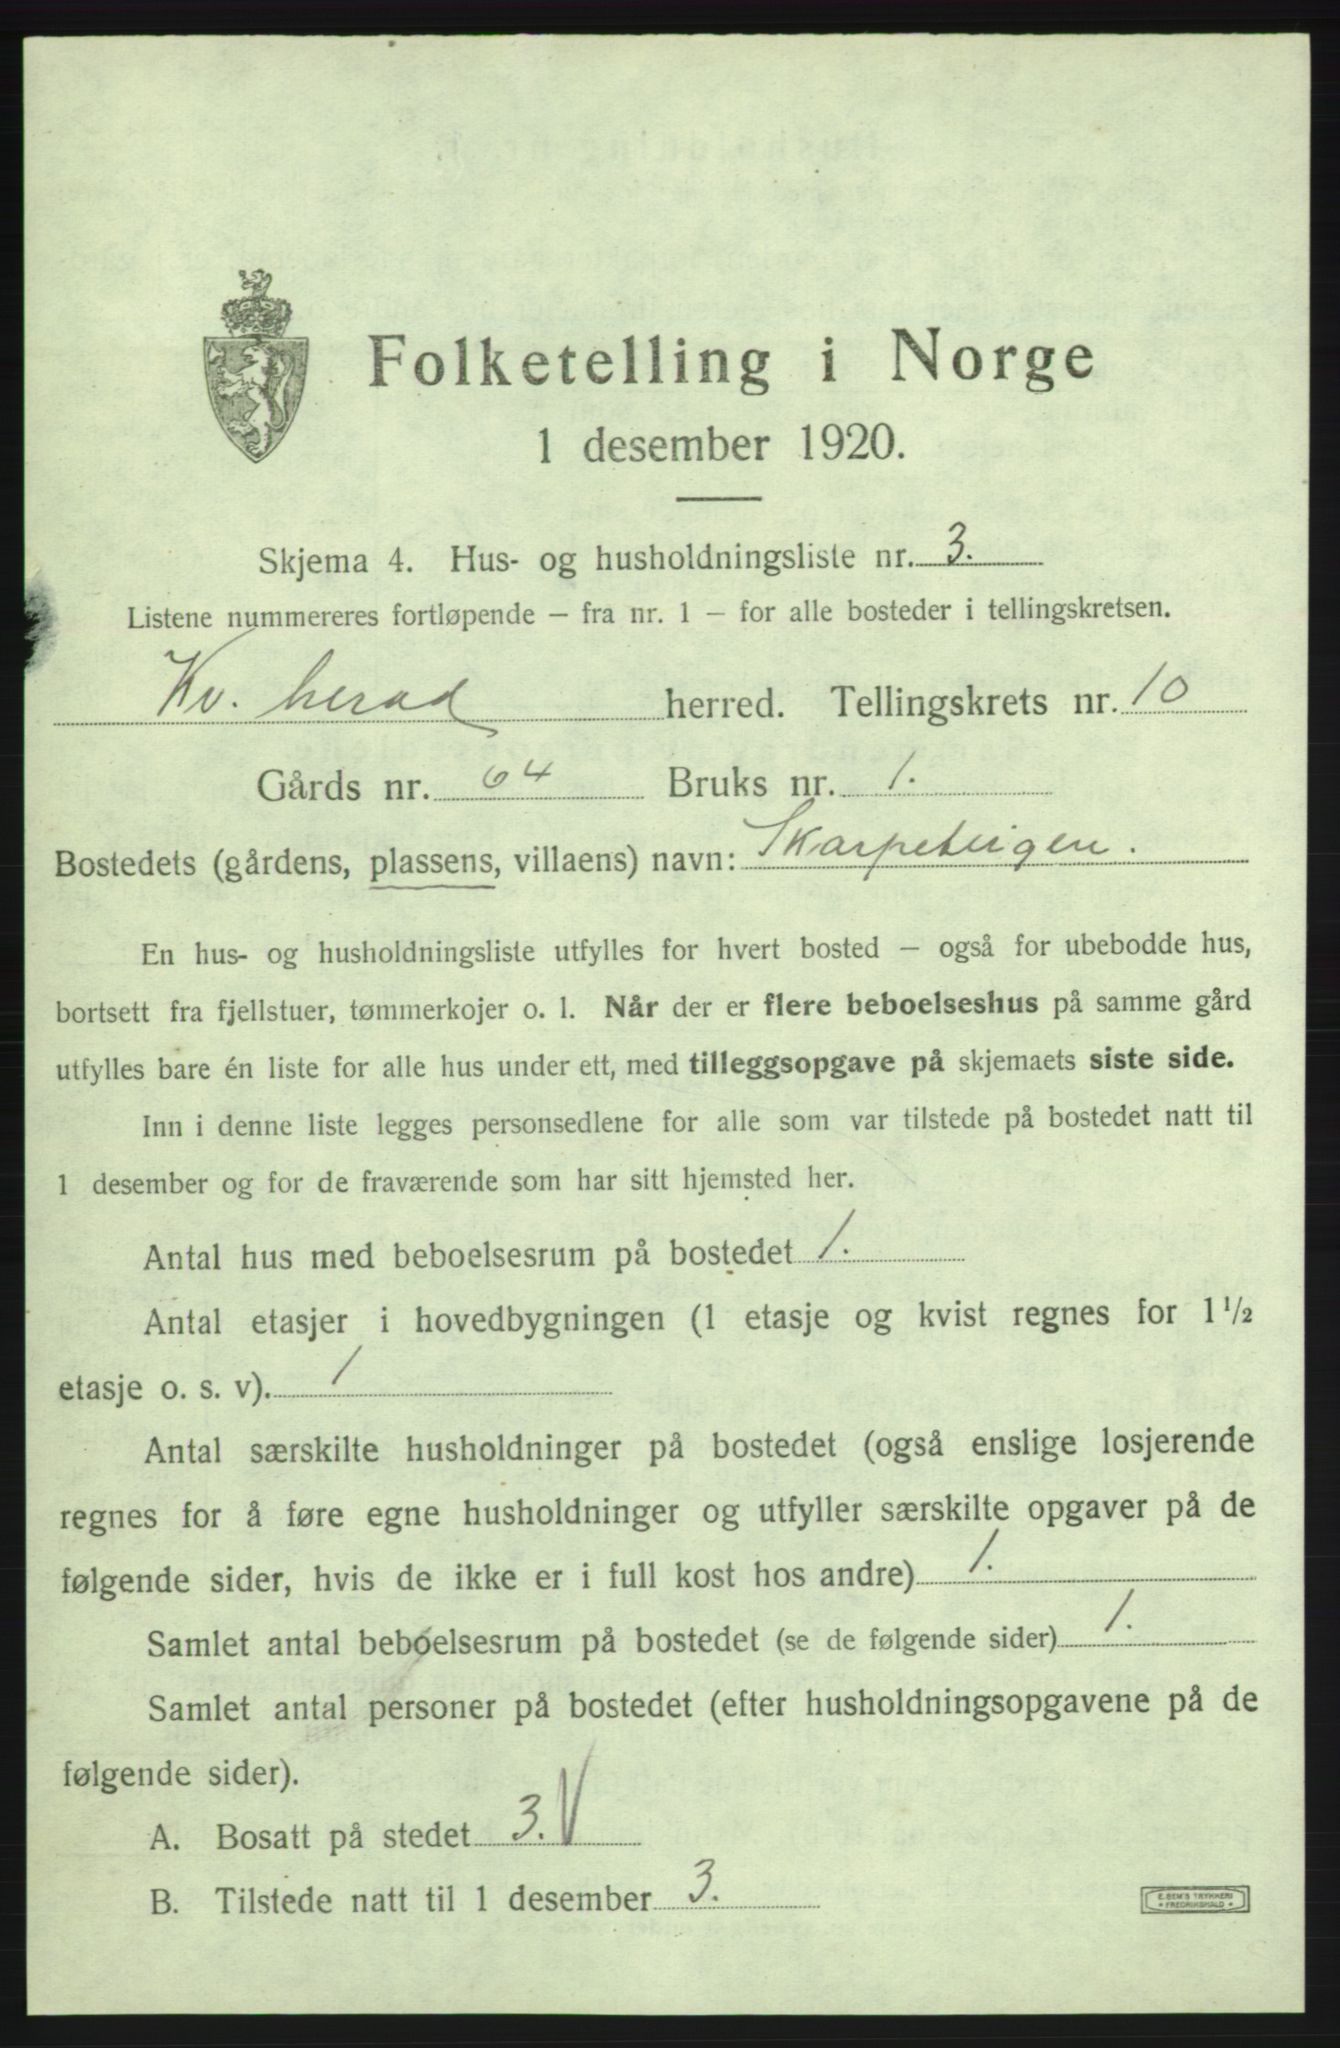 Folketelling i Norge
1 desember 1920.
Skjema 4. Hus- og husholdningsliste nr. 3.
Listene nummereres fortløpende – fra nr. 1 – for alle bosteder i tellingskretsen.
Kv. herad herred. Tellingskrets nr. 10
Gårds nr. 64 Bruks nr. 1.
Bostedets (gårdens, plassens, villaens) navn: Skarpeteigen.
En hus- og husholdningsliste utfylles for hvert bosted – også for ubebodde hus,
bortsett fra fjellstuer, tømmerkojer o. l. Når der er flere beboelseshus på samme gård
utfylles bare én liste for alle hus under ett, med tilleggsopgave på skjemaets siste side.
Inn i denne liste legges personsedlene for alle som var tilstede på bostedet natt til
1 desember og for de fraværende som har sitt hjemsted her.
Antal hus med beboelsesrum på bostedet 1.
Antal etasjer i hovedbygningen (1 etasje og kvist regnes for 1 1/2
etasje o. s. v). 1
Antal særskilte husholdninger på bostedet (også enslige losjerende
regnes for å føre egne husholdninger og utfyller særskilte opgaver på de
følgende sider, hvis de ikke er i full kost hos andre) 1.
Samlet antal beboelsesrum på bostedet (se de følgende sider) 1.
Samlet antal personer på bostedet (efter husholdningsopgavene på de
følgende sider).
A. Bosatt på stedet 3. V
B. Tilstede natt til 1 desember 3.
E. SEM'S TRYKKERI
• FREDRIKSHALD •